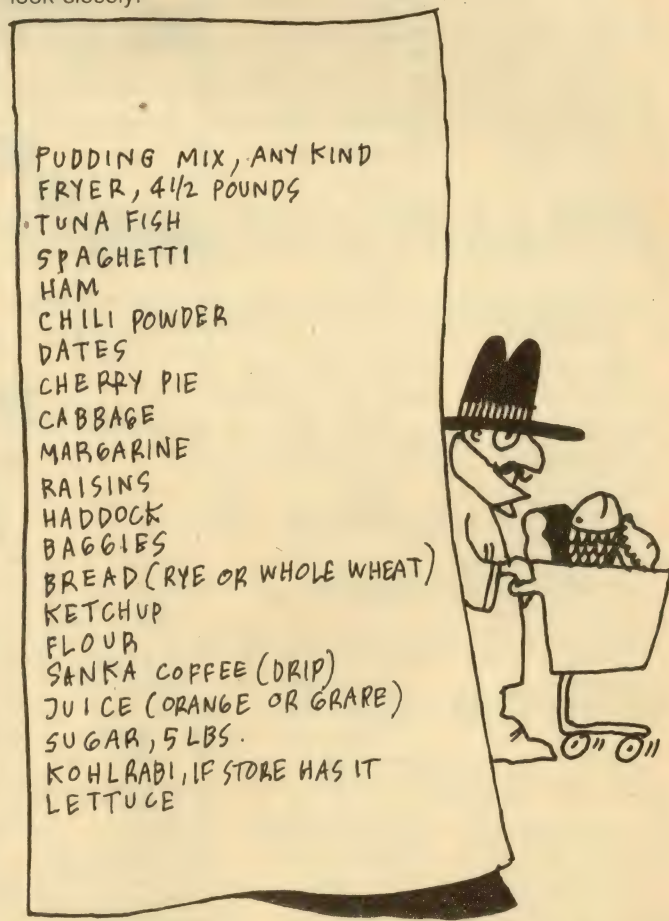 look closely.
PUDDING MIX, ANY KIND
FRYER, 4 1/2 POUNDS
TUNA FISH
SPAGHETTI
HAM
CHILI POWDER
DATES
CHERRY PIE
CABBAGE
MARGARINE
RAISINS
HADDOCK
BAGGIES
BREAD (RYE OR WHOLE WHEAT)
KETCHUP
FLOUR
SANKA COFFEE (DRIP)
JUICE (ORANGE OR GRAPE)
SUGAR, 5 LBS.
KOHLRABI, IF STORE HAS IT
LETTUCE